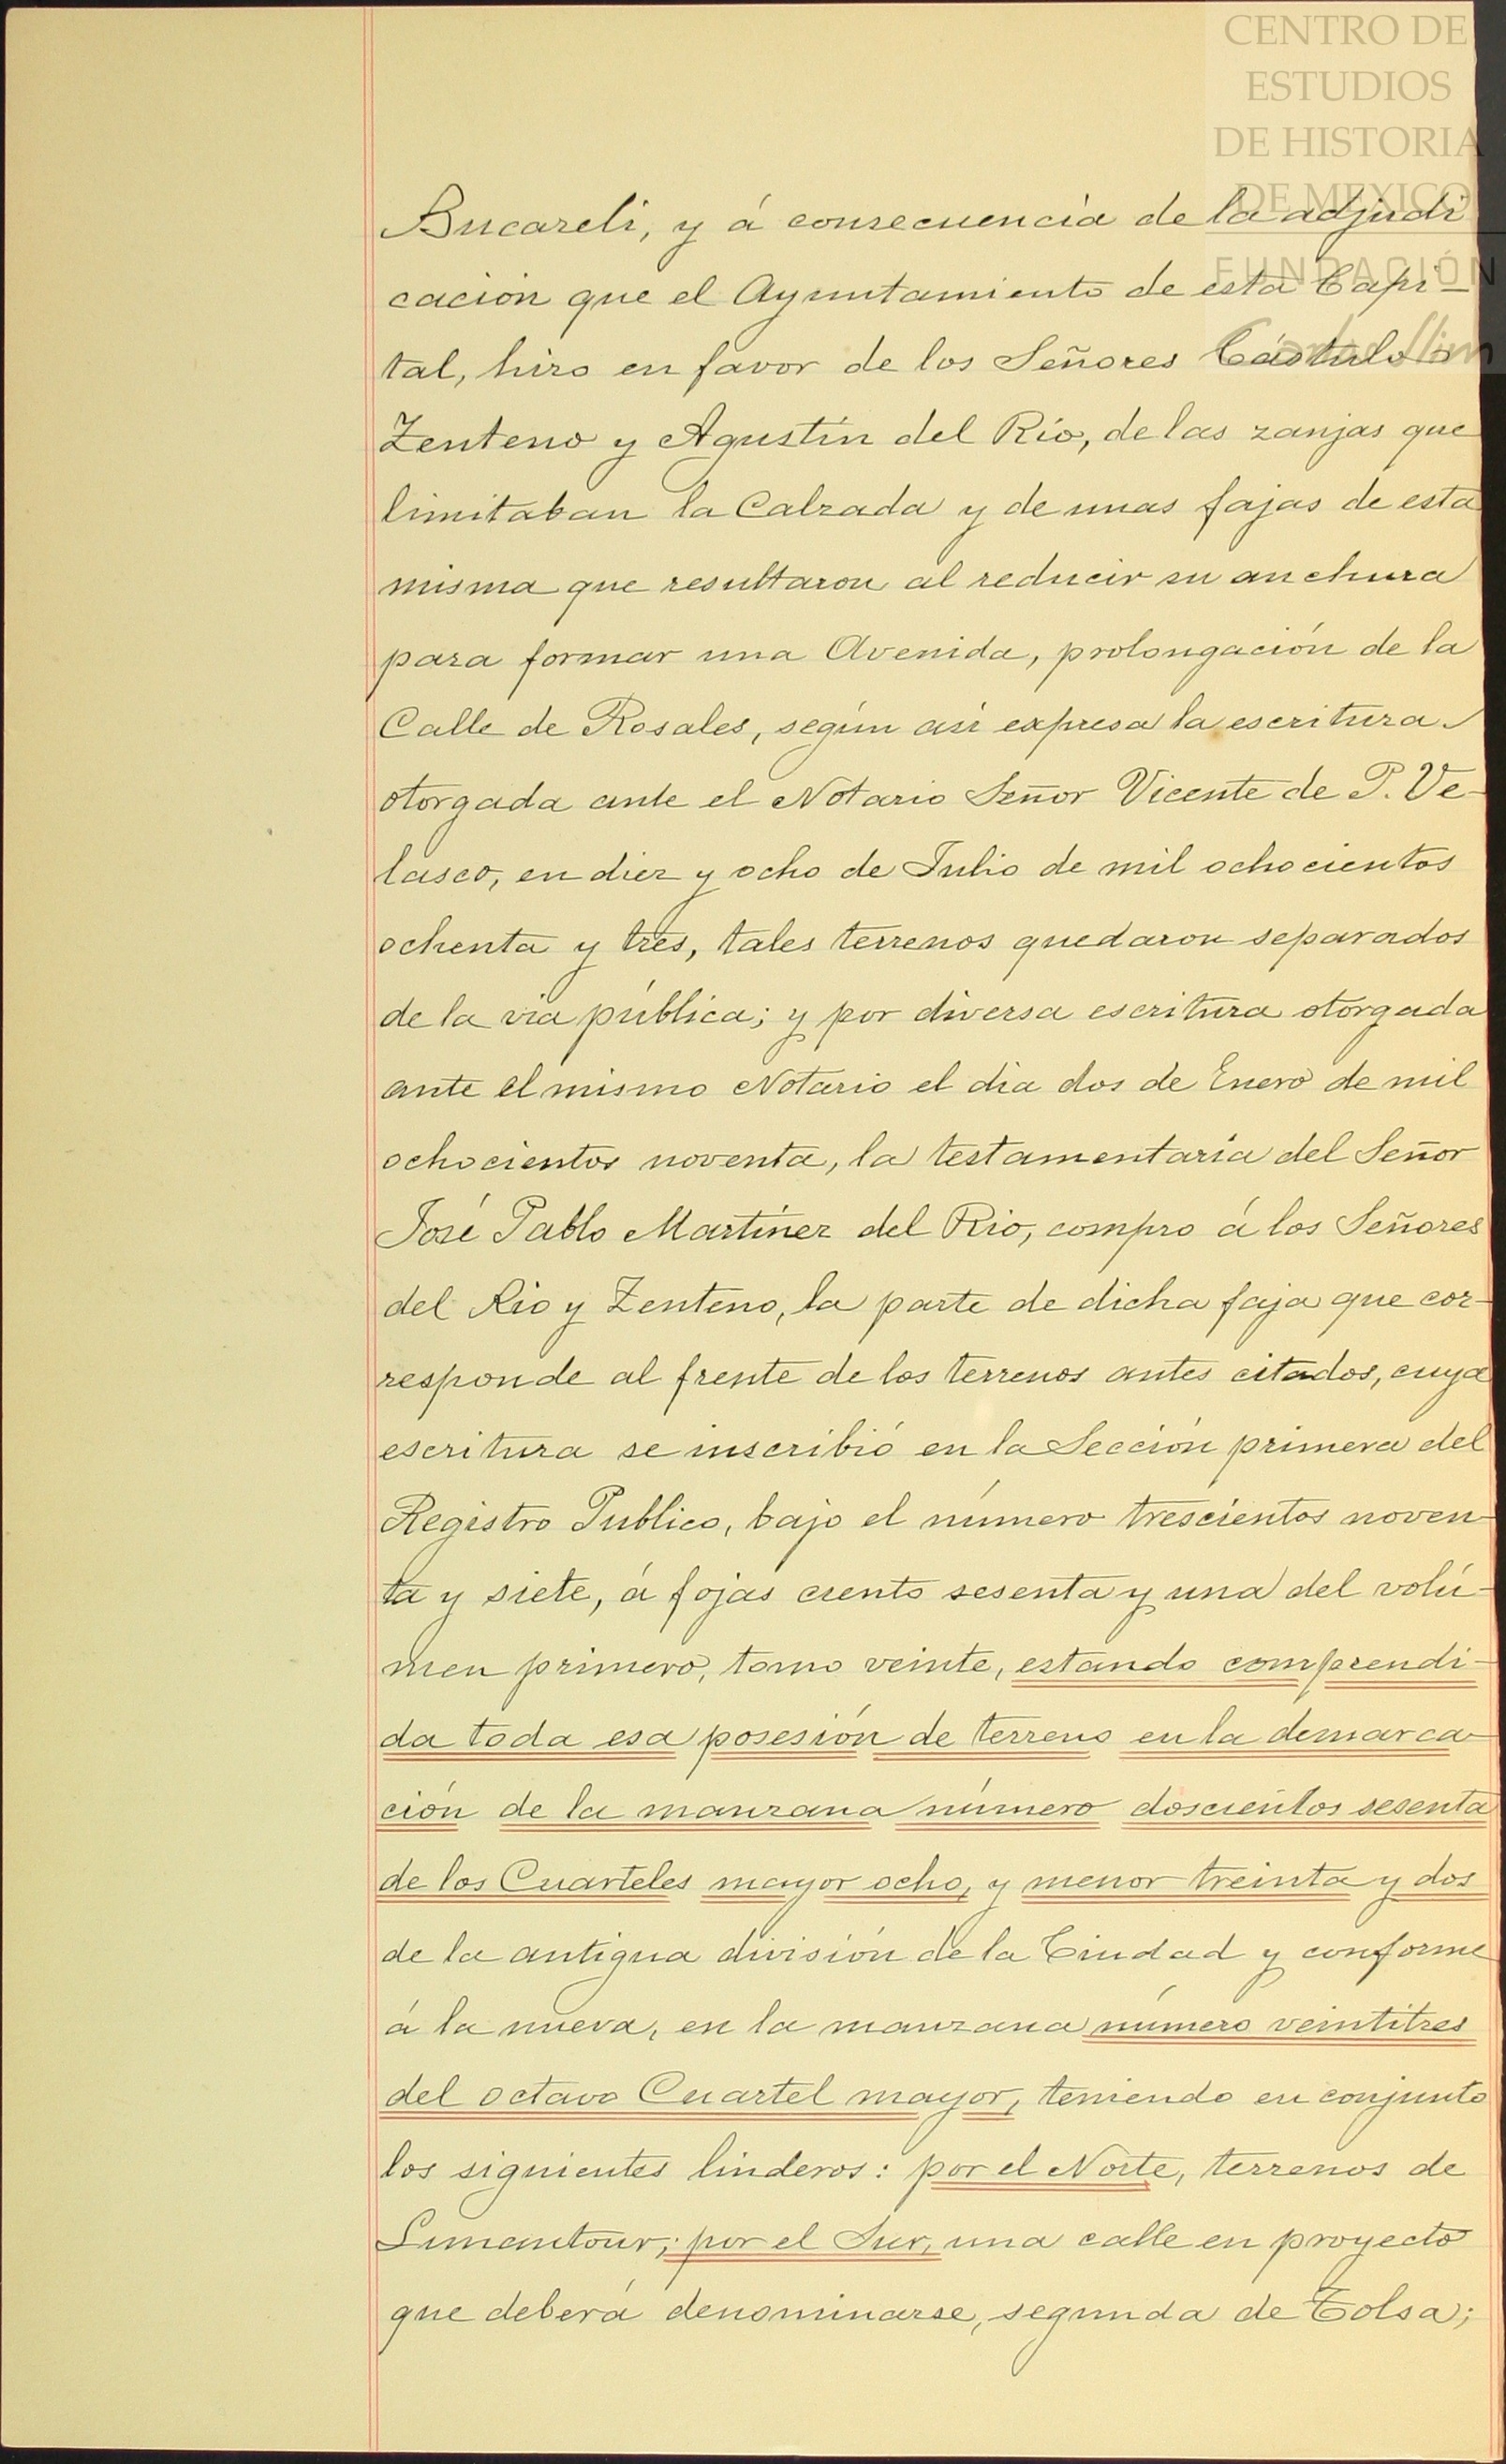 CENTRO DE
ESTUDIOS
DE HISTORIA
DE MEXICO
FUNDACIÓN
Carlos Slim
Bucareli, y á consecuencia de la adjudi
cación que el Ayuntamiento de esta Capi-
tal, hizo en favor de los Señores Cástulo
Zenteno y Agustín del Río, de las zanjas que
limitaban la Calzada y de unas fajas de esta
misma que resultaron al reducir su anchura
para formar una Avenida, prolongación de la
Calle de Rosales, según así expresa la escritura
otorgada ante el Notario Señor Vicente de P. Ve-
lasco, en diez y ocho de Julio de mil ochocientos
ochenta y tres, tales terrenos quedaron separados
de la vía pública; y por diversa escritura otorgada
ante el mismo Notario el día dos de Enero de mil
ochocientos noventa, la testamentaría del Señor
José Pablo Martínez del Rio, compro á los Señores
del Rio y Zenteno, la parte de dicha faja que cor-
responde al frente de los terrenos antes citados, cuya
escritura se inscribió en la Sección primera del
Registro Publico, bajo el número trescientos noven-
ta y siete, á fojas ciento sesenta y una del volú-
men primero, tomo veinte, estando comprendi-
da toda esa posesión de terreno en la demarca-
ción de la manzana número doscientos sesenta
de los Cuarteles mayor ocho, y menor treinta y dos
de la antigua división de la Ciudad y conforme
á la nueva, en la manzana número veintitres
del octavo Cuartel mayor, teniendo en conjunto
los siguientes linderos: por el Norte, terrenos de
Limantour; por el Sur, una calle en proyecto
que deberá denominarse, segunda de Tolsa;